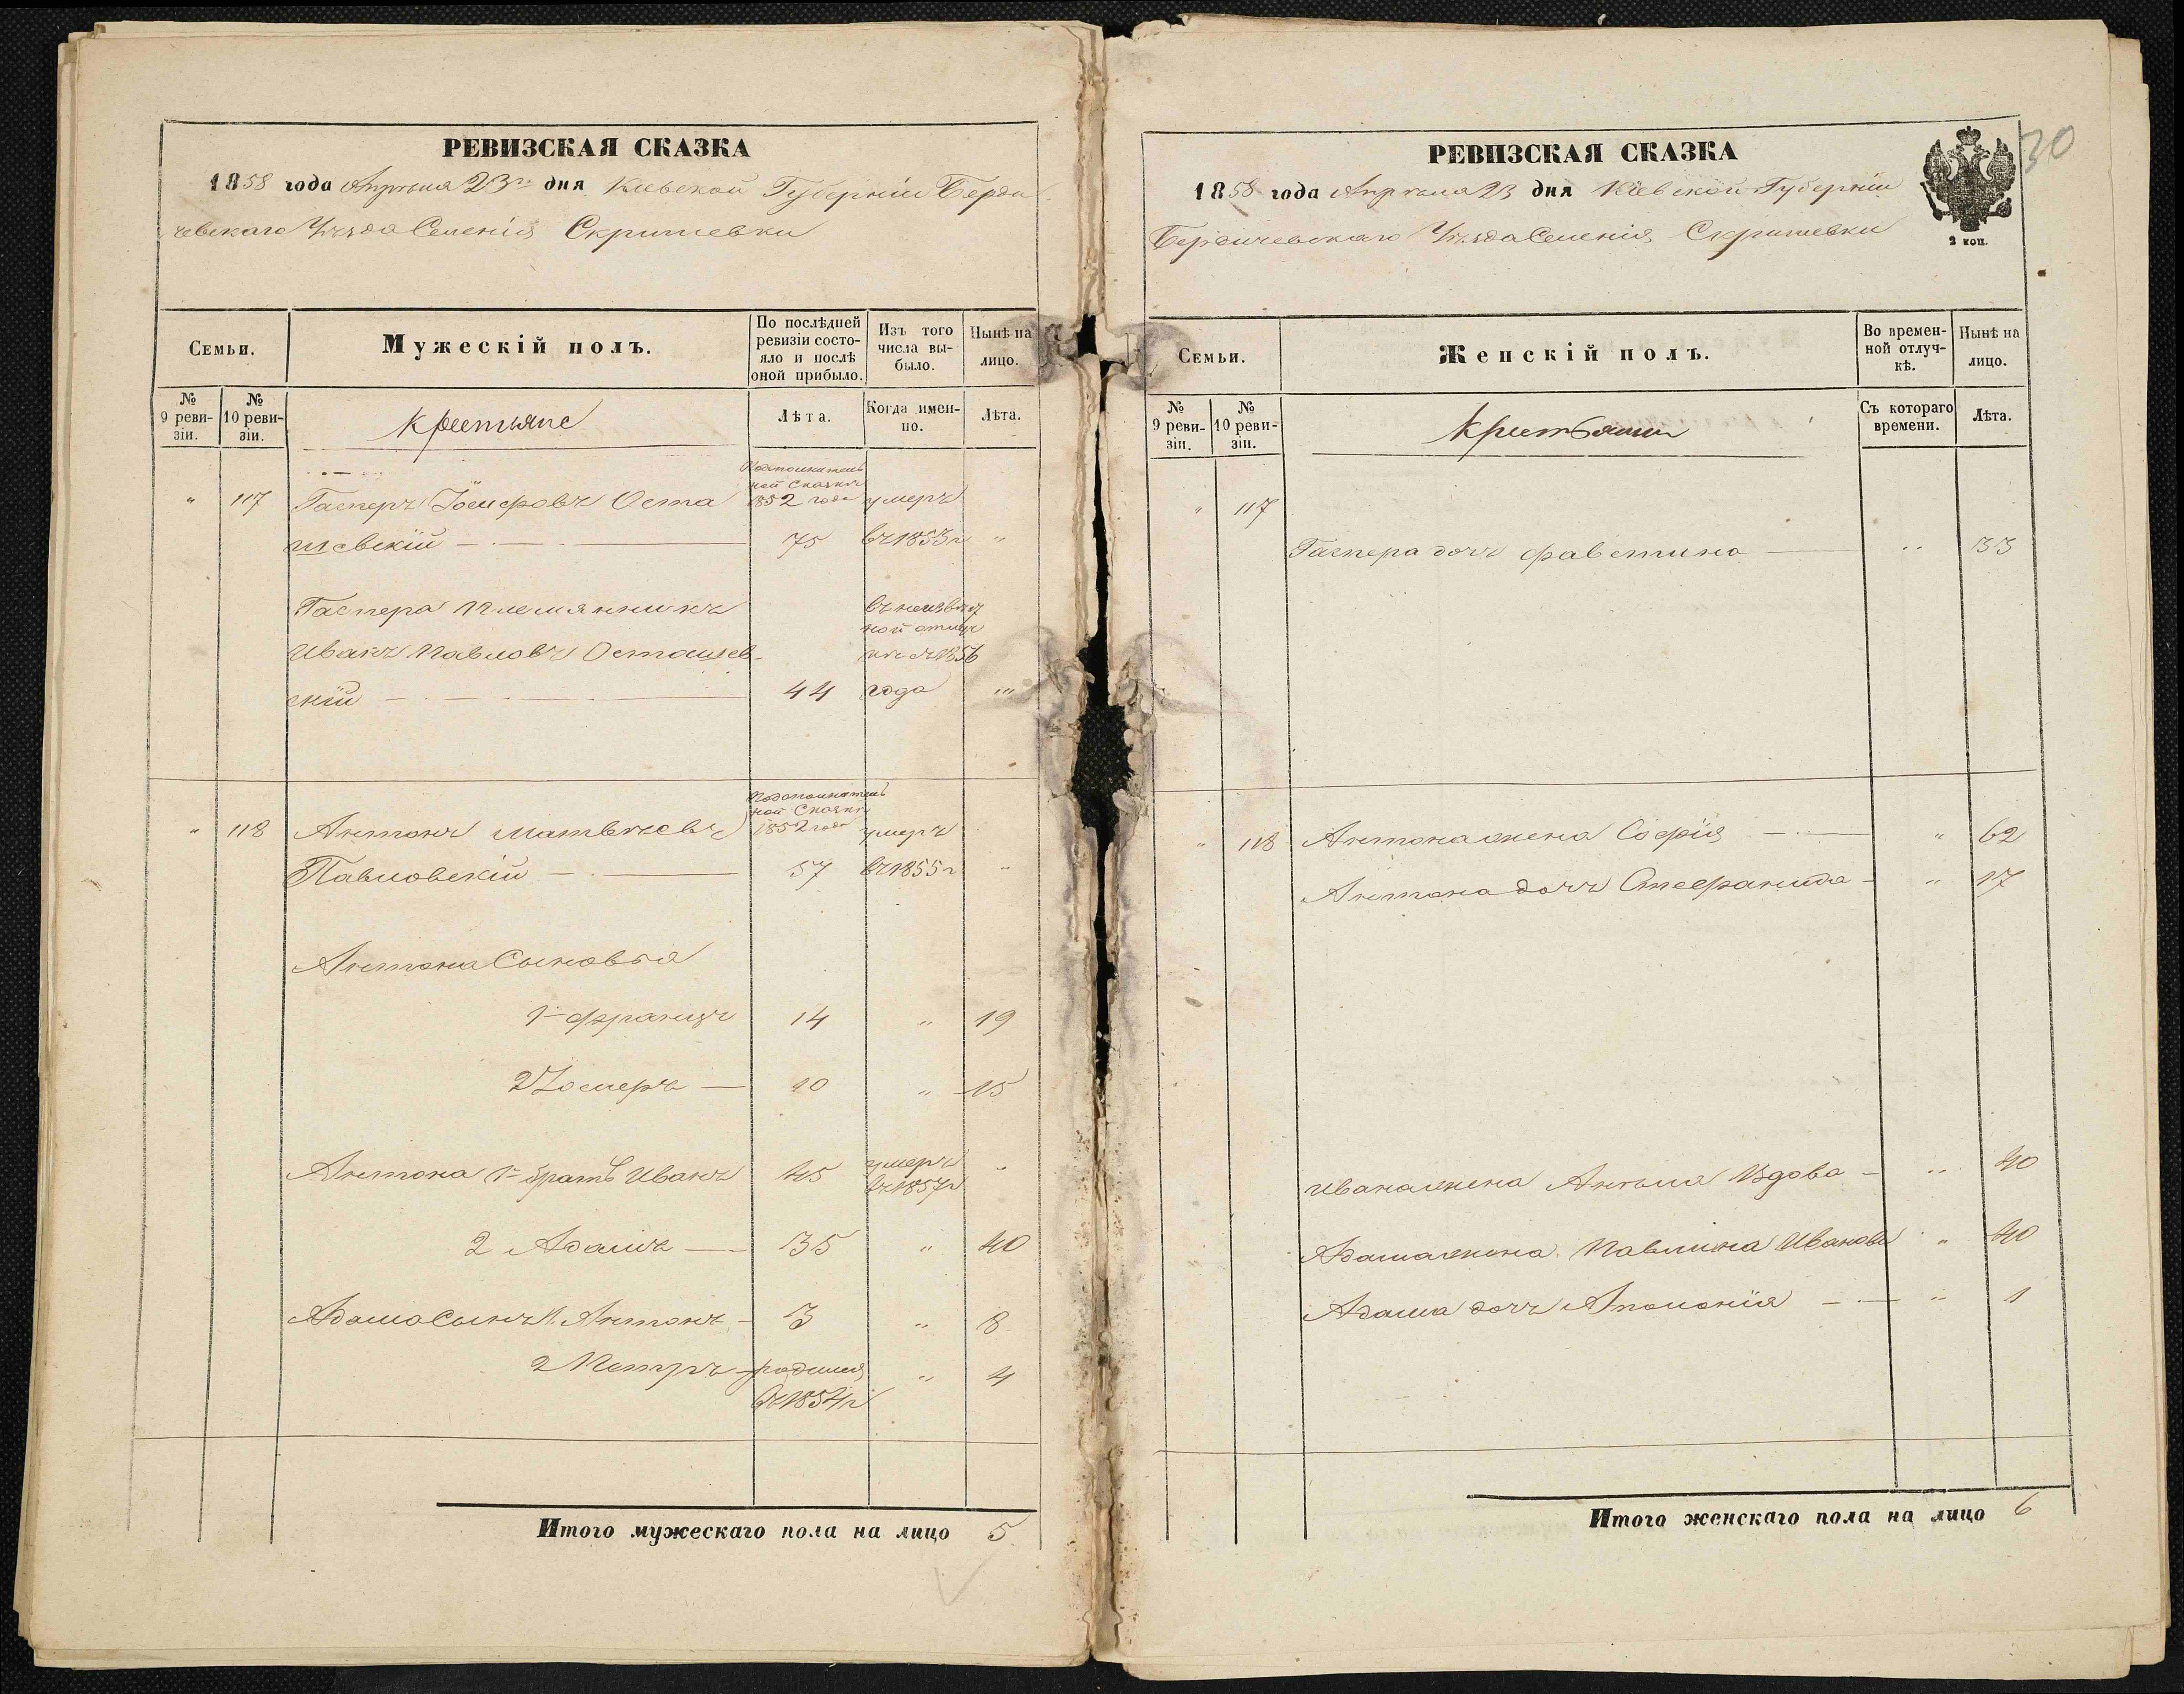 РЕВИЗСКАЯ СКАЗКА
1858 года Апрѣля 23го дня Кіевской Губерніи Берди
чевскаго Уѣзда Селенія Скришевки
Семьи.
Мужескій полъ.
По послѣдней ревизіи состояло и послѣ оной прибыло.
Изъ того числа выбыло.
Нынѣ на лицо.
№ 9 ревизіи.
№ 10 ревизіи.
Крестьяне
Лѣта.
Когда именно.
Лѣта.
По дополнитель
ной Сказкѣ
" 117 Гасперъ Іосифовъ Оста 1852 года умеръ
шевскій 75 въ 1853г "
Гаспера племянникъ
Иванъ Павловъ Осташев-
скій 44 года "
съ 1856
" 118 По дополнитель
ной Сказкѣ
Антонъ Матвѣевъ 1852 года умеръ
Павловскій 57 въ 1855г "
Антона Сыновья
1й Францъ 14 " 19
2 Іосифъ 10 " 15
Антона 1й братъ Иванъ 45 умеръ въ 1857г "
2 Адамъ 35 " 40
Адама Сынъ 1. Антонъ 3 " 8
2 Петръ родился " 4
въ 1854г
Итого мужескаго пола на лицо 5
30
РЕВИЗСКАЯ СКАЗКА
1858 года Апрѣля 23 дня Кіевской Губерніи
Бердичевскаго Уѣзда Селенія Скришевки
2 коп.
Семьи.
Женскій полъ.
Во временной отлучкѣ.
Нынѣ на лицо.
№ 9 ревизіи.
№ 10 ревизіи.
Крестьяне
Съ котораго времени.
Лѣта.
" 117
Гаспера дочь Фавстина " 33
" 118 Антона жена Софія " 62
Антона дочь Стефанида " 17
Ивана жена Анѣля Вдова " 40
Адама жена Павлина Иванова " 40
Адама дочь Аполонія " 1
Итого женскаго пола на лицо 6